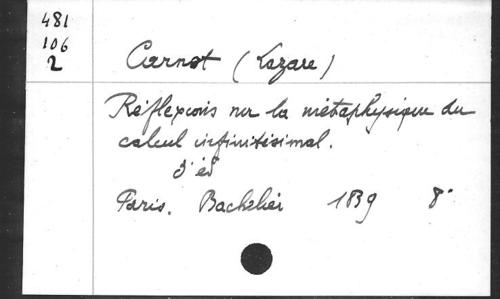 481
106
2
Carnot (Lazare)
Réflexions sur la métaphysique du
calcul infinitésimal.
3' éd
Paris. Bachelier 1839 8°